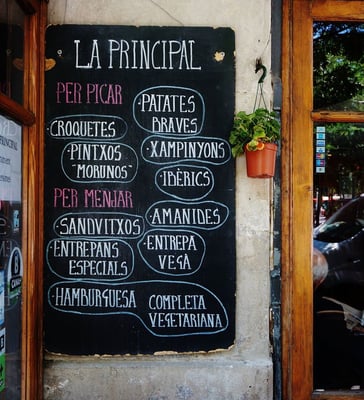 LA PRINCIPAL
PER PICAR
·PATATES
BRAVES
·CROQUETES
·XAMPINYONS
·PINTXOS
"MORUNOS"
·IBÈRICS
PER MENJAR
·AMANIDES
·SANDVITXOS
·ENTREPANS
ESPECIALS
·ENTREPA
VEGA
·HAMBURGUESA COMPLETA
VEGETARIANA